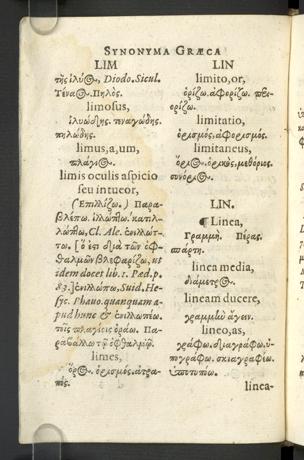 SYNONYMA GRÆCA
LIM
τῆς ἰλύος, Diodo. Sicul.
Τέναγος. Πηλός.
limosus,
ἰλυώδης. πιναγώδης.
πηλώδης.
limus, a, um,
πλάγιος.
limis oculis aspicio
seu intueor,
(Ἐπιλλίζω.) Παρα-
βλέπω. ἰλλώπτω. κατιλ-
λώπτω, Cl. Ale. ἐνιλλώπ-
τω. [ὅ ἐστι διὰ τῶν ὀφ-
θαλμῶν βλεφαρίζω, ut
idem docet lib. 1. Pæd. p.
83.] ἐνιλλώπω, Suid. He-
sys. Phauo. quanquam a-
pud hunc & ἐνιλλωπίω.
τοῖς πλαγίοις ὁράω. Πα-
ραβάλλω τὼ ὀφθαλμώ.
limes,
ὅρος. ὁρισμός. ἀτρα-
πός.
LIN
limito, or,
ὁρίζω. ἀφορίζω. περι-
ορίζω.
limitatio,
ὁρισμός, ἀφορισμός.
limitaneus,
ὅριος. ὁρικός, μεθόριος.
σύνορος.
LIN.
¶ Linea,
Γραμμή. Πέρας.
σπάρτη.
linea media,
διάμετρος.
lineam ducere,
γραμμὴν ἄγειν.
lineo, as,
γράφω. διαγράφω. ὑ-
πογράφω. σκιαγραφέω.
ὑποτυπόω.
linea-